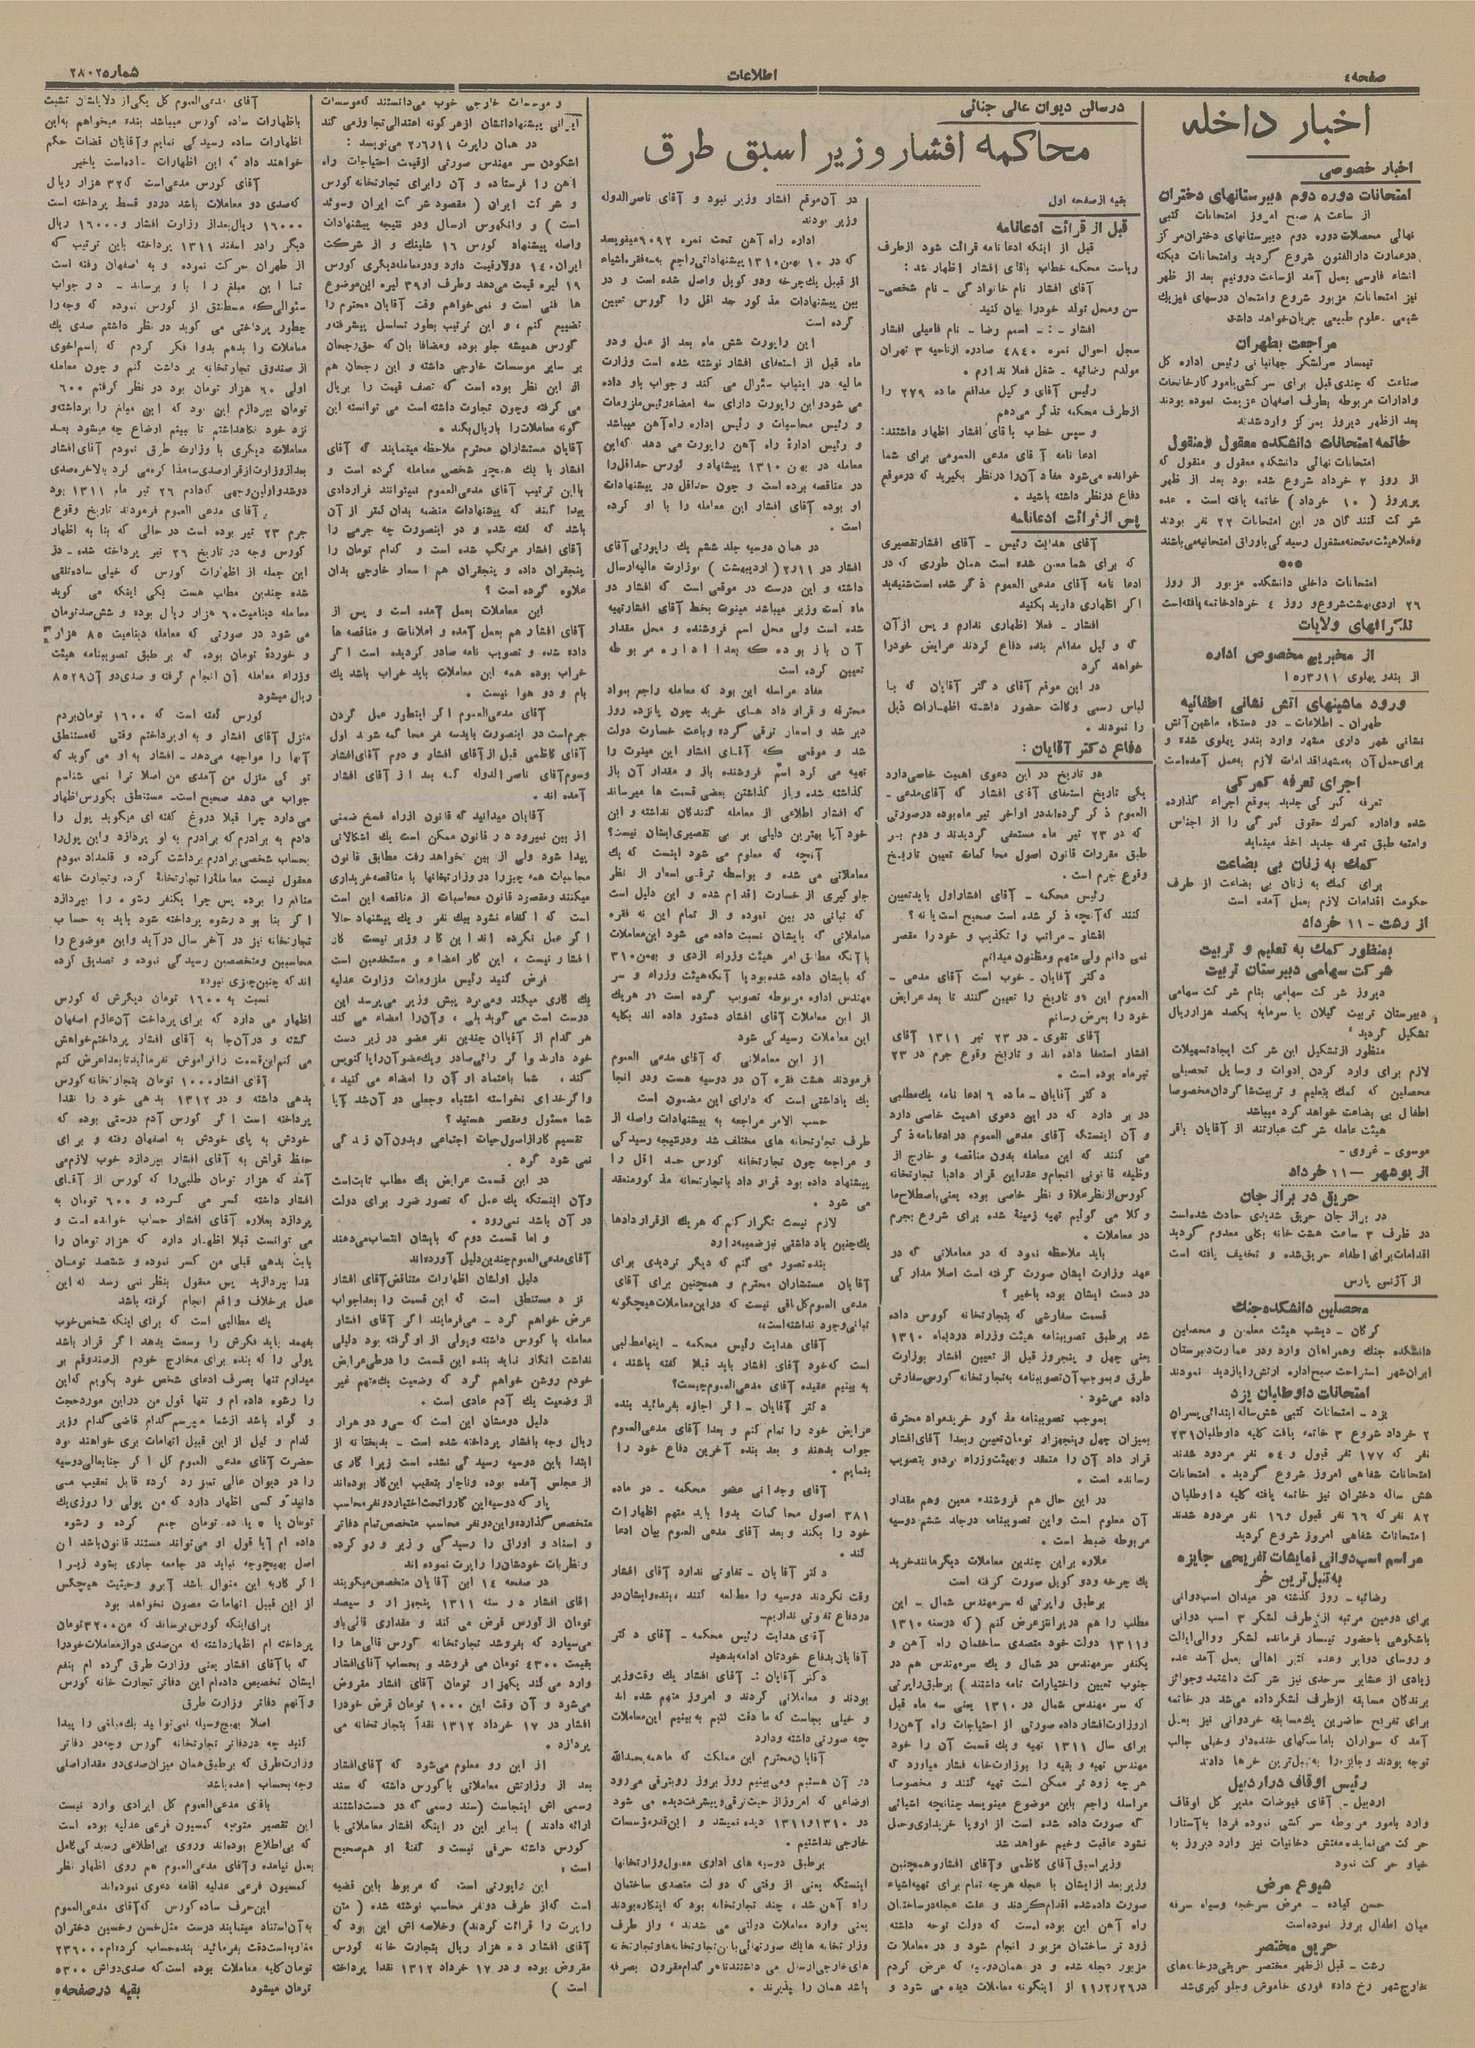 صفحه ٤
اطلاعات
شماره ٢٨٠٢٥
اخبار داخله
اخبار خصوصی
امتحانات دوره دوم دبیرستانهای دختران
از ساعت ٨ صبح امروز امتحانات کتبی
نهائی محصلات دوره دوم دبیرستانهای دختران مرکز
درعمارت دارالفنون شروع گردید وامتحانات دیکته
انشاء فارسی بعمل آمد ازساعت دوونیم بعد از ظهر
نیز امتحانات مزبور شروع وامتحان درسهای فیزیک
شیمی . علوم طبیعی جریان خواهد داشت
مراجعت بطهران
تیمسار سرلشگر جهانبانی رئیس اداره کل
صناعت که چندی قبل برای سرکشی بامور کارخانجات
وادارات مربوطه بطرف اصفهان عزیمت نموده بودند
بعد ازظهر دیروز بمرکز وارد شدند
خاتمه امتحانات دانشکده معقول و منقول
امتحانات نهائی دانشکده معقول و منقول که
از روز ٢ خرداد شروع شده بود بعد از ظهر
پریروز ( ١٠ خرداد ) خاتمه یافته است . عده
شرکت کنندگان در این امتحانات ٢٢ نفر بودند
وفعلا هیئت ممتحنه مشغول رسیدگی باوراق امتحانیه می باشند
***
امتحانات داخلی دانشکده مزبور از روز
٢٦ اردی بهشت شروع و روز ٤ خرداد خاتمه یافته است
تلگرافهای ولایات
از مخبرین مخصوص اداره
از بندر پهلوی ١٥٫٣٫١١
ورود ماشینهای آتش نشانی اطفائیه
طهران - اطلاعات - دو دستگاه ماشین آتش
نشانی شهر داری مشهد وارد بندر پهلوی شده و
برای حمل آن به مشهد اقدامات لازم بعمل آمده است
اجرای تعرفه گمرکی
تعرفه گمرکی جدید بموقع اجراء گذارده
شده واداره گمرک حقوق گمرکی را از اجناس
وامتعه طبق تعرفه جدید اخذ مینماید
کمک به زنان بی بضاعت
برای کمک به زنان بی بضاعت از طرف
حکومت اقدامات لازم بعمل آمده است
از رشت - ١١ خرداد
بمنظور کمک به تعلیم و تربیت
شرکت سهامی دبیرستان تربیت
دیروز شرکت سهامی بنام شرکت سهامی
دبیرستان تربیت گیلان با سرمایه یکصد هزار ریال
تشکیل گردید
منظور ازتشکیل این شرکت ایجاد تسهیلات
لازم برای وارد کردن ادوات و وسایل تحصیلی
محصلین که کمک بتعلیم و تربیت شاگردان مخصوصا
اطفال بی بضاعت خواهد کرد میباشد
هیئت عامله شرکت عبارتند از آقایان باقر
موسوی - غروی -
از بوشهر - ١١ خرداد
حریق در براز جان
در براز جان حریق شدیدی حادث شده است
در ظرف ٣ ساعت هشت خانه بکلی معدوم گردید
اقدامات برای اطفاء حریق شده و تخفیف یافته است
از آژانس پارس
محصلین دانشکده جنگ
گرگان - دیشب هیئت معلمین و محصلین
دانشکده جنگ وهمراهان وارد ودر عمارت دبیرستان
ایران شهر استراحت صبح اداره ارتش را بازدید نمودند
امتحانات داوطلبان یزد
یزد - امتحانات کتبی شش ساله ابتدائی پسران
٢ خرداد شروع ٣ خاتمه یافت کلیه داوطلبان ٢٣١
نفر که ١٧٧ نفر قبول و ٥٤ نفر مردود شدند
امتحانات شفاهی امروز شروع گردید . امتحانات
شش ساله دختران نیز خاتمه یافته کلیه داوطلبان
٨٢ نفر که ٦٦ نفر قبول و١٦ نفر مردود شدند
امتحانات شفاهی امروز شروع گردید
مراسم اسب دوانی نمایشات تفریحی جایزه
به تنبل ترین خر
رضائیه - روز گذشته در میدان اسب دوانی
برای دومین مرتبه از طرف لشکر ٣ اسب دوانی
باشکوهی باحضور تیمسار فرمانده لشکر ووالی ایالت
و روسای دوایر وعده کثیر اهالی بعمل آمد عده
زیادی از عشایر سرحدی نیز شرکت داشتند وجوائز
برندگان مسابقه ازطرف لشکرداده می شد در خاتمه
برای تفریح حاضرین یک مسابقه خردوانی نیز بعمل
آمد که سواران باماسکهای خنده دار وخیلی جالب
توجه بودند وجایزه را به تنبل ترین خرها دادند
رئیس اوقاف دراردبیل
اردبیل - آقای فیوضات مدیر کل اوقاف
وارد بامور مربوطه سرکشی نموده فردا به آستارا
حرکت می نماید مفتش دخانیات نیز وارد دیروز به
خیاو حرکت نمود
شیوع مرض
حسن کیاده - مرض سرخجه وسیاه سرفه
میان اطفال بروز نموده است
حریق مختصر
رشت - قبل ازظهر مختصر حریقی درخانه های
خارج شهر رخ داده فوری خاموش وجلوگیری شد
درسالن دیوان عالی جنائی
محاکمه افشار وزیر اسبق طرق
بقیه از صفحه اول
قبل از قرائت ادعانامه
قبل از اینکه ادعا نامه قرائت شود ازطرف
ریاست محکمه خطاب بآقای افشار اظهار شد :
آقای افشار نام خانوادگی - نام شخصی-
سن ومحل تولد خودرا بیان کنید
افشار -:- اسمم رضا - نام فامیلی افشار
سجل احوال نمره ٤٨٤٠ صادره ازناحیه ٣ تهران
مولدم رضائیه - شغل فعلا ندارم .
رئیس آقای وکیل مدافع ماده ٢٧٩ را
ازطرف محکمه تذکر می دهم
و سپس خطاب باقای افشار اظهار داشتند:
ادعا نامه آقای مدعی العمومی برای شما
خوانده می شود مفاد آن را درنظر بگیرید که درموقع
دفاع درنظر داشته باشید .
پس ازقرائت ادعانامه
آقای هدایت رئیس - آقای افشار تقصیری
که برای شما معین شده است همان طوری که در
ادعا نامه آقای مدعی العموم ذکر شده است شنیدید
اگر اظهاری دارید بکنید
افشار - فعلا اظهاری ندارم و پس ازآن
که وکیل مدافع بنده دفاع کردند عرایض خودرا
خواهد کرد
در این موقع آقای دکتر آقایان که با
لباس رسمی وکالت حضور داشته اظهارات ذیل
را نمودند .
دفاع دکتر آقایان :
دو تاریخ در این دعوی اهمیت خاصی دارد
یکی تاریخ استعفای آقای افشار که آقای مدعی -
العموم ذکر کرده اند در اواخر تیر ماه بوده درصورتی
که در ٢٣ تیر ماه مستعفی گردیدند و دوم بر
طبق مقررات قانون اصول محاکمات تعیین تاریخ
وقوع جرم است .
رئیس محکمه - آقای افشار اول باید تعیین
کنند که آنچه ذکر شده است صحیح است یا نه ؟
افشار - مراتب را تکذیب و خود را مقصر
نمی دانم ولی متهم ومظنون میدانم
دکتر آقایان - خوب است آقای مدعی -
العموم این دو تاریخ را تعیین کنند تا بعد عرایض
خود را بعرض رسانم
آقای تقوی - در ٢٣ تیر ١٣١١ آقای
افشار استعفا داده اند و تاریخ وقوع جرم در ٢٣
تیر ماه بوده است .
دکتر آقایان - ماده ٦ ادعا نامه یک مطلبی
در بر دارد که در این دعوی اهمیت خاصی دارد
و آن اینستکه آقای مدعی العموم در ادعانامه ذکر
می کنند که این معامله بدون مناقصه و خارج از
وظیفه قانونی انجام وعقد این قرار دادبا تجارتخانه
کورس ازنظر علاقه و نظر خاصی بوده یعنی باصطلاح ما
وکلا می گوئیم تهیه زمینۀ شده برای شروع بجرم
در معاملات .
باید ملاحظه نمود که در معاملاتی که در
عهد وزارت ایشان صورت گرفته است اصلا مدارکی
در دست ایشان بوده یاخیر ؟
قسمت سفارشی که بتجارتخانه کورس داده
شد برطبق تصویبنامه هیئت وزراء دردیماه ١٣١٠
یعنی چهل و پنجروز قبل از تعیین افشار بوزارت
طرق وبموجب آن تصویبنامه به تجارتخانه کورس سفارش
داده می شود .
بموجب تصویبنامه مذکور خرید مواد محترقه
بمیزان چهل وپنجهزار تومان تعیین وبعدا آقای افشار
قرار داد آن را منعقد وبهیئت وزراء برده و بتصویب
رسانده است .
در این حال هم فروشنده معین وهم مقدار
آن معلوم است واین تصویبنامه درجلد ششم دوسیه
مربوطه ضبط است .
علاوه براین چندین معاملات دیگر مانند خرید
یک چرخه ودو کوبل صورت گرفته است
برطبق راپرتی که سر مهندس شمال - این
مطلب را هم در پرانتز عرض کنم ( که درسنه ١٣١٠
و ١٣١١ دولت خود متصدی ساختمان راه آهن و
یکنفر سرمهندس در شمال و یک سرمهندس هم در
جنوب تعیین واختیارات تامه داشتند ) برطبق راپرتی
که سر مهندس شمال در ١٣١٠ یعنی سه ماه قبل
ازوزارت افشار داده صورتی از احتیاجات راه آهن را
برای سال ١٣١١ تهیه و یک قسمت آن را خود
مهندس تهیه و بقیه را بوزارتخانه فشار میاورد که
هر چه زود تر ممکن است تهیه کنند و مخصوصا
مراسله راجع باین موضوع مینویسد چنانچه اشیائی
که صورت داده شده است از اروپا خریداری وحمل
نشود عاقبت وخیم خواهد شد
وزیر اسبق آقای کاظمی و آقای افشار وهمچنین
وزیر بعد ازایشان با عجله هرچه تمام برای تهیه اشیاء
صورت داده شده اقدام کردند و علت عجله درساختمان
راه آهن این بوده است که دولت توجه داشته
زود تر ساختمان مزبور انجام شود و در معاملات
مزبور عجله شده و در همان دوسیه که عرض کردم
در ١١٫٢٫٢٦ از اینگونه معاملات دیده می شود و
در آن موقع افشار وزیر نبود و آقای ناصر الدوله
وزیر بودند
اداره راه آهن تحت نمره ٦٠٩٢ مینویسد
که در ١٠ بهمن ١٣١٠ پیشنهاداتی راجع به سه فقره اشیاء
از قبیل یک چرخه ودو کوبل واصل شده است و در
بین پیشنهادات مذکور حد اقل را کورس تعیین
کرده است
این راپورت شش ماه بعد از عمل و دو
ماه قبل از استعفای افشار نوشته شده است وزارت
مالیه در اینباب سئوال می کند و جواب باو داده
می شود و این راپورت دارای سه امضاء رئیس ملزومات
و رئیس محاسبات و رئیس اداره راه آهن میباشد
و رئیس ادارۀ راه آهن راپورت می دهد که این
معامله در بهمن ١٣١٠ پیشنهاد و کورس حداقل را
در مناقصه برده است و چون حداقل در پیشنهادات
او بوده آقای افشار این معامله را با او کرده
است .
در همان دوسیه جلد ششم یک راپورتی آقای
افشار در ٢٫١١ ( اردیبهشت ) بوزارت مالیه ارسال
داشته و این درست در موقعی است که افشار دو
ماه است وزیر میباشد مینوت بخط آقای افشار تهیه
شده است ولی محل اسم فروشنده و محل مقدار
آن باز بوده که بعدا اداره مربوطه
تعیین کرده است
مفاد مراسله این بود که معامله راجع بمواد
محترقه و قرار داد های خرید چون پانزده روز
دیر شد و اسعار ترقی کرده وباعث خسارت دولت
شد و موقعی که آقای افشار این مینوت را
تهیه می کرد اسم فروشنده باز و مقدار آن باز
گذاشته شده و باز گذاشتن بعضی قسمت ها میرساند
که افشار اطلاعی از معامله کنندگان نداشته و این
خود آیا بهترین دلیلی بر بی تقصیری ایشان نیست؟
آنچه که معلوم می شود اینست که یک
معاملاتی می شده و بواسطه ترقی اسعار از نظر
جلوگیری از خسارت اقدام شده و این دلیل است
که تبانی در بین نبوده و از تمام این نه فقره
معاملاتی که بایشان نسبت داده می شود این معاملات
یا آنکه مطابق امر هیئت وزراء ازدی و بهمن ٣١٠
که بایشان داده شده بودیا آنکه هیئت وزراء و سر
مهندس اداره مربوطه تصویب کرده است در هر یک
از این معاملات آقای افشار دستور داده اند بکلیه
این معاملات رسیدگی شود
از این معاملاتی که آقای مدعی العموم
فرمودند هشت فقره آن در دوسیه هست ودر انجا
یک یاداشتی است که دارای این مضمون است
حسب الامر مراجعه به پیشنهادات واصله از
طرف تجارتخانه های مختلف شد ودرنتیجه رسیدگی
و مراجعه چون تجارتخانه کورس حد اقل را
پیشنهاد داده بود قرار داد باتجارتخانه مذکور منعقد
می شود .
لازم نیست تکرار کنم که هر یک از قرار دادها
یک چنین یاد داشتی نیز ضمیمه دارد
بنده تصور می کنم که دیگر تردیدی برای
آقایان مستشاران محترم و همچنین برای آقای
مدعی العموم کل باقی نیست که در این معاملات هیچگونه
تبانی وجود نداشته است
آقای هدایت رئیس محکمه - اینها مطلبی
است که خود آقای افشار باید قبلا گفته باشند ،
به بینیم عقیده آقای مدعی العموم چیست؟
دکتر آقایان - اگر اجازه بفرمائید بنده
عرایض خود را تمام کنم و بعدا آقای مدعی العموم
جواب بدهند و بعد بنده آخرین دفاع خود را
بنمایم .
آقای وجدانی عضو محکمه - در ماده
٣٨١ اصول محاکمات بدوا باید متهم اظهارات
خود را بکند و بعد آقای مدعی العموم بیان ادعا
کند .
دکتر آقایان - تفاوتی ندارد آقای افشار
وقت نکردند دوسیه را مطالعه کنند ، بنده و ایشان در
در دفاع تفاوتی نداریم-
آقای هدایت رئیس محکمه - آقای دکتر
آقایان بدفاع خودتان ادامه بدهید
دکتر آقایان : - آقای افشار یک وقت وزیر
بودند و معاملاتی کردند و امروز متهم شده اند
و خیلی بجاست که ما دقت کنیم به بینیم این معاملات
چه صورتی داشته ودارد
آقایان محترم این مملکت که ماهمه بحمدالله
در آن هستیم ومی بینیم روز بروز روبترقی می رود
اوضاعی که امروز از حیث ترقی و پیشرفت دیده می شود
در ١٣١٠ و ١٣١١ دیده نمیشد و این قدر مؤسسات
خارجی نداشتیم .
برطبق دوسیه های اداری معمول وزارتخانها
اینستکه یعنی از وقتی که دولت متصدی ساختمان
راه آهن شد ، چند تجارتخانه بود که اینکاره بودند
یعنی وارد معاملات دولتی می شدند ، واز طرف
وزارتخانه هایک صورتهائی باین تجارتخانه ها و تجارتخانه
های خارجی ارسال می داشتند تا هر کدام مقرون بصرفه
باشد همان را بپذیرند .
و موسسات خارجی خوب می دانستند که موسسات
ایرانی پیشنهاداتشان ازهر گونه اعتدالی تجاوز می کند
در همان راپرت ٢٫٦٫١١ می نویسد :
اشکودن سر مهندس صورتی ازقیمت احتیاجات راه
آهن را فرستاده و آن رابرای تجارتخانه کورس
و شرکت ایران ( مقصود شرکت ایران وسوئد
است ) و وانگهوس ارسال ودر نتیجه پیشنهادات
واصله پیشنهاد کورس ١٦ شلینگ و از شرکت
ایران ١٤٠ دولار قیمت دارد ودرمعامله دیگری کورس
١٩ لیره قیمت می دهد وطرف او ٣٩ لیره این موضوع
ها فنی است و نمی خواهم وقت آقایان محترم را
تضییع کنم ، و این ترتیب بطور تسلسل پیشرفته و
کورس همیشه جلو بوده ومضافا بان که حق رجحان
بر سایر موسسات خارجی داشته و این رجحان هم
از این نظر بوده است که نصف قیمت را بریال
می گرفته وچون تجارت داشته است می توانسته این
گونه معاملات را باریال بکند .
آقایان مستشاران محترم ملاحظه مینمایند که آقای
افشار با یک همچو شخصی معامله کرده است و
بااین ترتیب آقای مدعی العموم نمیتوانند قراردادی
پیدا کنند که پیشنهادات منضمه بدان کمتر از آن
باشد که گفته شده و در اینصورت چه جرمی را
آقای افشار مرتکب شده است و کدام تومان را
پنجقران داده و پنجقران هم اسعار خارجی بدان
علاوه کرده است ؟
این معاملات بعمل آمده است و پس از
آقای افشار هم بعمل آمده و اعلانات و مناقصه ها
داده شده و تصویب نامه صادر گردیده است اگر
خراب بوده همه این معاملات باید خراب باشد یک
بام و دو هوا نیست .
آقای مدعی العموم اگر اینطور عمل کردن
جرم است در اینصورت بایدسه نفر محاکمه شوند اول
آقای کاظمی قبل از آقای افشار و دوم آقای افشار
وسوم آقای ناصر الدوله که بعد از آقای افشار
آمده اند .
آقایان میدانید که قانون ازراه فسخ ضمنی
از بین نمیرود در قانون ممکن است یک اشکالاتی
پیدا شود ولی از بین نخواهد رفت مطابق قانون
محاسبات همه چیز را در وزارتخانها با مناقصه خریداری
میکنند ومقصود قانون محاسبات از مناقصه این
است که اکتفاء نشود بیک نفر و یک پیشنهاد حالا
اگر عمل نکرده اند این کار وزیر نیست کار
افشار نیست ، این کار اعضاء و مستخدمین است
فرض کنید رئیس ملزومات وزارت عدلیه
یک کاری میکند ومی برد پیش وزیر می پرسد این
درست است می گوید بلی ، و آن را امضاء می کند
هر کدام از آقایان چندین نفر عضو در زیر دست
خود دارند وا گر رائی صادر ویک عضو آن را پا کنویس
کند ، شما باعتماد او آن را امضاء می کنید ،
واگر خدای نخواسته اشتباه وجعلی در آن شد آیا
شما مسئول ومقصر هستید ؟
تقسیم کار ازاصول حیات اجتماعی وبدون آن زندگی
نمی شود کرد .
در این قسمت عرایض یک مطلب ثابت است
و آن اینستکه یک عمل که تصور ضرر برای دولت
در آن باشد نمی رود .
و اما قسمت دوم که بایشان انتساب می دهند
آقای مدعی العموم چندین دلیل آورده اند
دلیل اولشان اظهارات متناقض آقای افشار
نزد مستنطق است که این قسمت را بعدا جواب
عرض خواهم کرد - می فرمایند اگر آقای افشار
معامله با کورس داشته وپولی از او گرفته بود دلیلی
نداشت انکار نماید بنده این قسمت را درطی عرایض
خودم روشن خواهم کرد که وضعیت یک متهم غیر
از وضعیت یک آدم عادی است .
دلیل دومشان این است که سی و دو هزار
ریال وجه بافشار پرداخته شده است - بدبختانه از
ابتدا باین دوسیه رسیدگی نشده است زیرا کاری
از مجلس آمده بوده وناچار بتعقیب این کار بوده اند
پارکه دوسیه این کار را تحت اختیار دو نفر محاسب
متخصص گذارده و این دو نفر محاسب متخصص تمام دفاتر
و اسناد و اوراق را رسیدگی و زیر و رو کرده
ونظریات خودشان را راپرت نموده اند
در صفحه ١٤ این آقایان متخصص میگویند
آقای افشار در سنه ١٣١١ پنجهزار و سیصد
تومان از کورس قرض می کند و مقداری قالی باو
میسپارد که بفروشد تجارتخانه کورس قالی ها را
بقیمت ٤٣٠٠ تومان می فروشد و بحساب آقای افشار
وارد می کند یکهزار تومان آقای افشار مقروض
می شود و آن وقت این ١٠٠٠ تومان قرض خود را
افشار در ١٧ خرداد ١٣١٢ نقداً بتجارتخانه می
پردازد .
از این رو معلوم می شود که آقای افشار
بعد از وزارتش معاملاتی با کورس داشته که سند
رسمی اش اینجاست (سند رسمی که در دست داشتند
ارائه دادند ) بنابر این در اینکه افشار معاملاتی با
کورس داشته حرفی نیست و گفتۀ او هم صحیح
است .
این راپورتی است که مربوط باین قضیه
است که از طرف دونفر محاسب نوشته شده ( متن
راپرت را قرائت کردند ) وخلاصه اش این بود که
آقای افشار ده هزار ریال بتجارت خانه کورس
مقروض بوده و در ١٧ خرداد ١٣١٢ نقدا پرداخته
است )
آقای مدعی العموم کل یکی از دلایلشان تشبث
باظهارات ساده کورس میباشد بنده میخواهم به این
اظهارات ساده رسیدگی نمایم و آقایان قضات حکم
خواهند داد که این اظهارات ساده است یاخیر
آقای کورس مدعی است که ٣٢ هزار ریال
که صدی دو معاملات باشد دردو قسط پرداخته است
١٦٠٠٠ ریال بعداز وزارت افشار و١٦٠٠٠ ریال
دیگر رادر اسفند ١٣١١ پرداخته باین ترتیب که
از طهران حرکت نموده و به اصفهان رفته است
تا این مبلغ را باو برساند - در جواب
سئوالی که مستنطق از کورس نموده که وجه را
چطور پرداختی می گوید در نظر داشتم صدی یک
معاملات را بدهم بدوا فکر کردم که باسم اخوی
از صندوق تجارتخانه برداشت کنم و چون معامله
اولی ٦٠ هزار تومان بود در نظر گرفتم ٦٠٠
تومان بپردازم این بود که این مبلغ را برداشته و
نزد خود نگاهداشتم تا ببینم اوضاع چه میشود بعد
معاملات دیگری با وزارت طرق نمودم آقای افشار
بعد از وزارت از قرار صدی سه تقاضا کرد می کرد بالاخره صدی
دو شد و اولین وجهی که دادم ٢٦ تیر ماه ١٣١١ بود
آقای مدعی العموم فرمودند تاریخ وقوع
جرم ٢٣ تیر بوده است در حالی که بنا به اظهار
کورس وجه در تاریخ ٢٦ تیر پرداخته شده - در
این جمله از اظهارات کورس که خیلی ساده تلقی
شده چندین مطلب هست یکی اینکه می گوید
معامله دینامیت ٦٠ هزار ریال بوده و شش صد تومان
می شود در صورتی که معامله دینامیت ٨٥ هزار
و خوردۀ تومان بوده که بر طبق تصویبنامه هیئت
وزراء معامله آن انجام گرفته و صدی دو آن ٨٥٢٩
ریال میشود
کورس گفته است که ١٦٠٠ تومان بردم
منزل آقای افشار و به او پرداختم وقتی که مستنطق
آنها را مواجهه می دهد - افشار به او می گوید که
تو کی منزل من آمدی من اصلا ترا نمی شناسم
جواب می دهد صحیح است - مستنطق بکورس اظهار
می دارد چرا قبلا دروغ گفته ای میگوید پول را
دادم به برادرم که برادرم به او بپردازد و این پول را
بحساب شخصی برادرم برداشت کرده و قلمداد نمودم
معقول نیست معامله را تجارتخانۀ کرده وتجارت خانه
منافع را برده پس چرا یکنفر رشوه را بپردازد
اگر بنا بود رشوه پرداخته شود باید به حساب
تجارتخانه نیز در آخر سال درآید واین موضوع را
محاسبین ومتخصصین رسیدگی نموده و تصدیق کرده
اند که چنین چیزی نبوده
نسبت به ١٦٠٠ تومان دیگرش که کورس
اظهار می دارد که برای پرداخت آن عازم اصفهان
گشته و در آن جا به آقای افشار پرداختم خواهش
می کنم این قسمت را فراموش نفرمائید تا بعد اعرض کنم
آقای افشار ١٠٠٠ تومان بتجارتخانه کورس
بدهی داشته و در ١٣١٢ بدهی خود را نقدا
پرداخته است اگر کورس آدم درستی بوده که
خودش به پای خودش به اصفهان رفته و برای
حفظ قولش به آقای افشار بپردازد خوب لازم می
آمد که هزار تومان طلبی را که کورس از آقای
افشار داشته کسر می کرده و ٦٠٠ تومان به
پردازد بعلاوه آقای افشار حساب خوانده است و
می توانست قبلا اظهار دارد که هزار تومان را
بابت بدهی قبلی من کسر نموده و ششصد تومان
نقدا بپردازید پس معقول بنظر نمی رسد که این
عمل برخلاف واقع انجام گرفته باشد
یک مطالبی است که برای اینکه شخص خوب
بفهمد باید فکرش را وسعت بدهد اگر قرار باشد
پولی را که بنده برای مخارج خودم ازصندوقم بر
میدارم تنها بصرف ادعای شخص خود بگویم که این
را رشوه داده ام و تنها قول من دراین موردحجت
و گواه باشد ازشما میپرسم کدام قاضی کدام وزیر
کدام و کیل از این قبیل اتهامات بری خواهند بود
حضرت آقای مدعی العموم کل اگر جنابعالی دوسیه
را در دیوان عالی تمیز رد کرده قابل تعقیب نمی
دانید و کسی اظهار دارد که من پولی را روزی یک
تومان یا ٥ یا ده تومان جمع کرده و رشوه
داده ام آیا قول او می تواند مستند قانون باشد این
اصل بهیچوجه نباید در جامعه جاری بشود زیرا
اگر کار به این منوال باشد آبرو وحیثیت هیچکس
از این قبیل اتهامات مصون نخواهد بود
برای اینکه کورس برساند که من ٣٢٠٠ تومان
پرداخته ام اظهار داشته که من صدی دو از معاملات خود را
که با آقای افشار یعنی وزارت طرق کرده ام بنفع
ایشان تخصیص داده ام این دفاتر تجارت خانه کورس
و آنهم دفاتر وزارت طرق
اصلا بهیچ وسیله نمی توانید یک مبنائی را پیدا
کنید چه دردفاتر تجارتخانه کورس وچه در دفاتر
وزارت طرق که برطبق همان میزان صدی دو مقدار اصلی
وجه بحساب آمده باشد
باقای مدعی العموم کل ایرادی وارد نیست
این تقصیر متوجه کمسیون فرعی عدلیه بوده است
که بی اطلاع بوده اند وروی بی اطلاعی رسیدگی کامل
بعمل نیامده و آقای مدعی العموم هم روی اظهار نظر
کمسیون فرعی عدلیه اقامه دعوی نموده اند
این حرف ساده کورس که آقای مدعی العموم
به آن استناد مینمایند درست مثل حسن وحسین دختران
معاویه است دقت بفرمائید بنده حساب کرده ام ٢٣٦٠٠٠
تومان کلیه معاملات بوده است که صدی دواش ٥٣٠٠
تومان میشود
بقیه در صفحه ٥